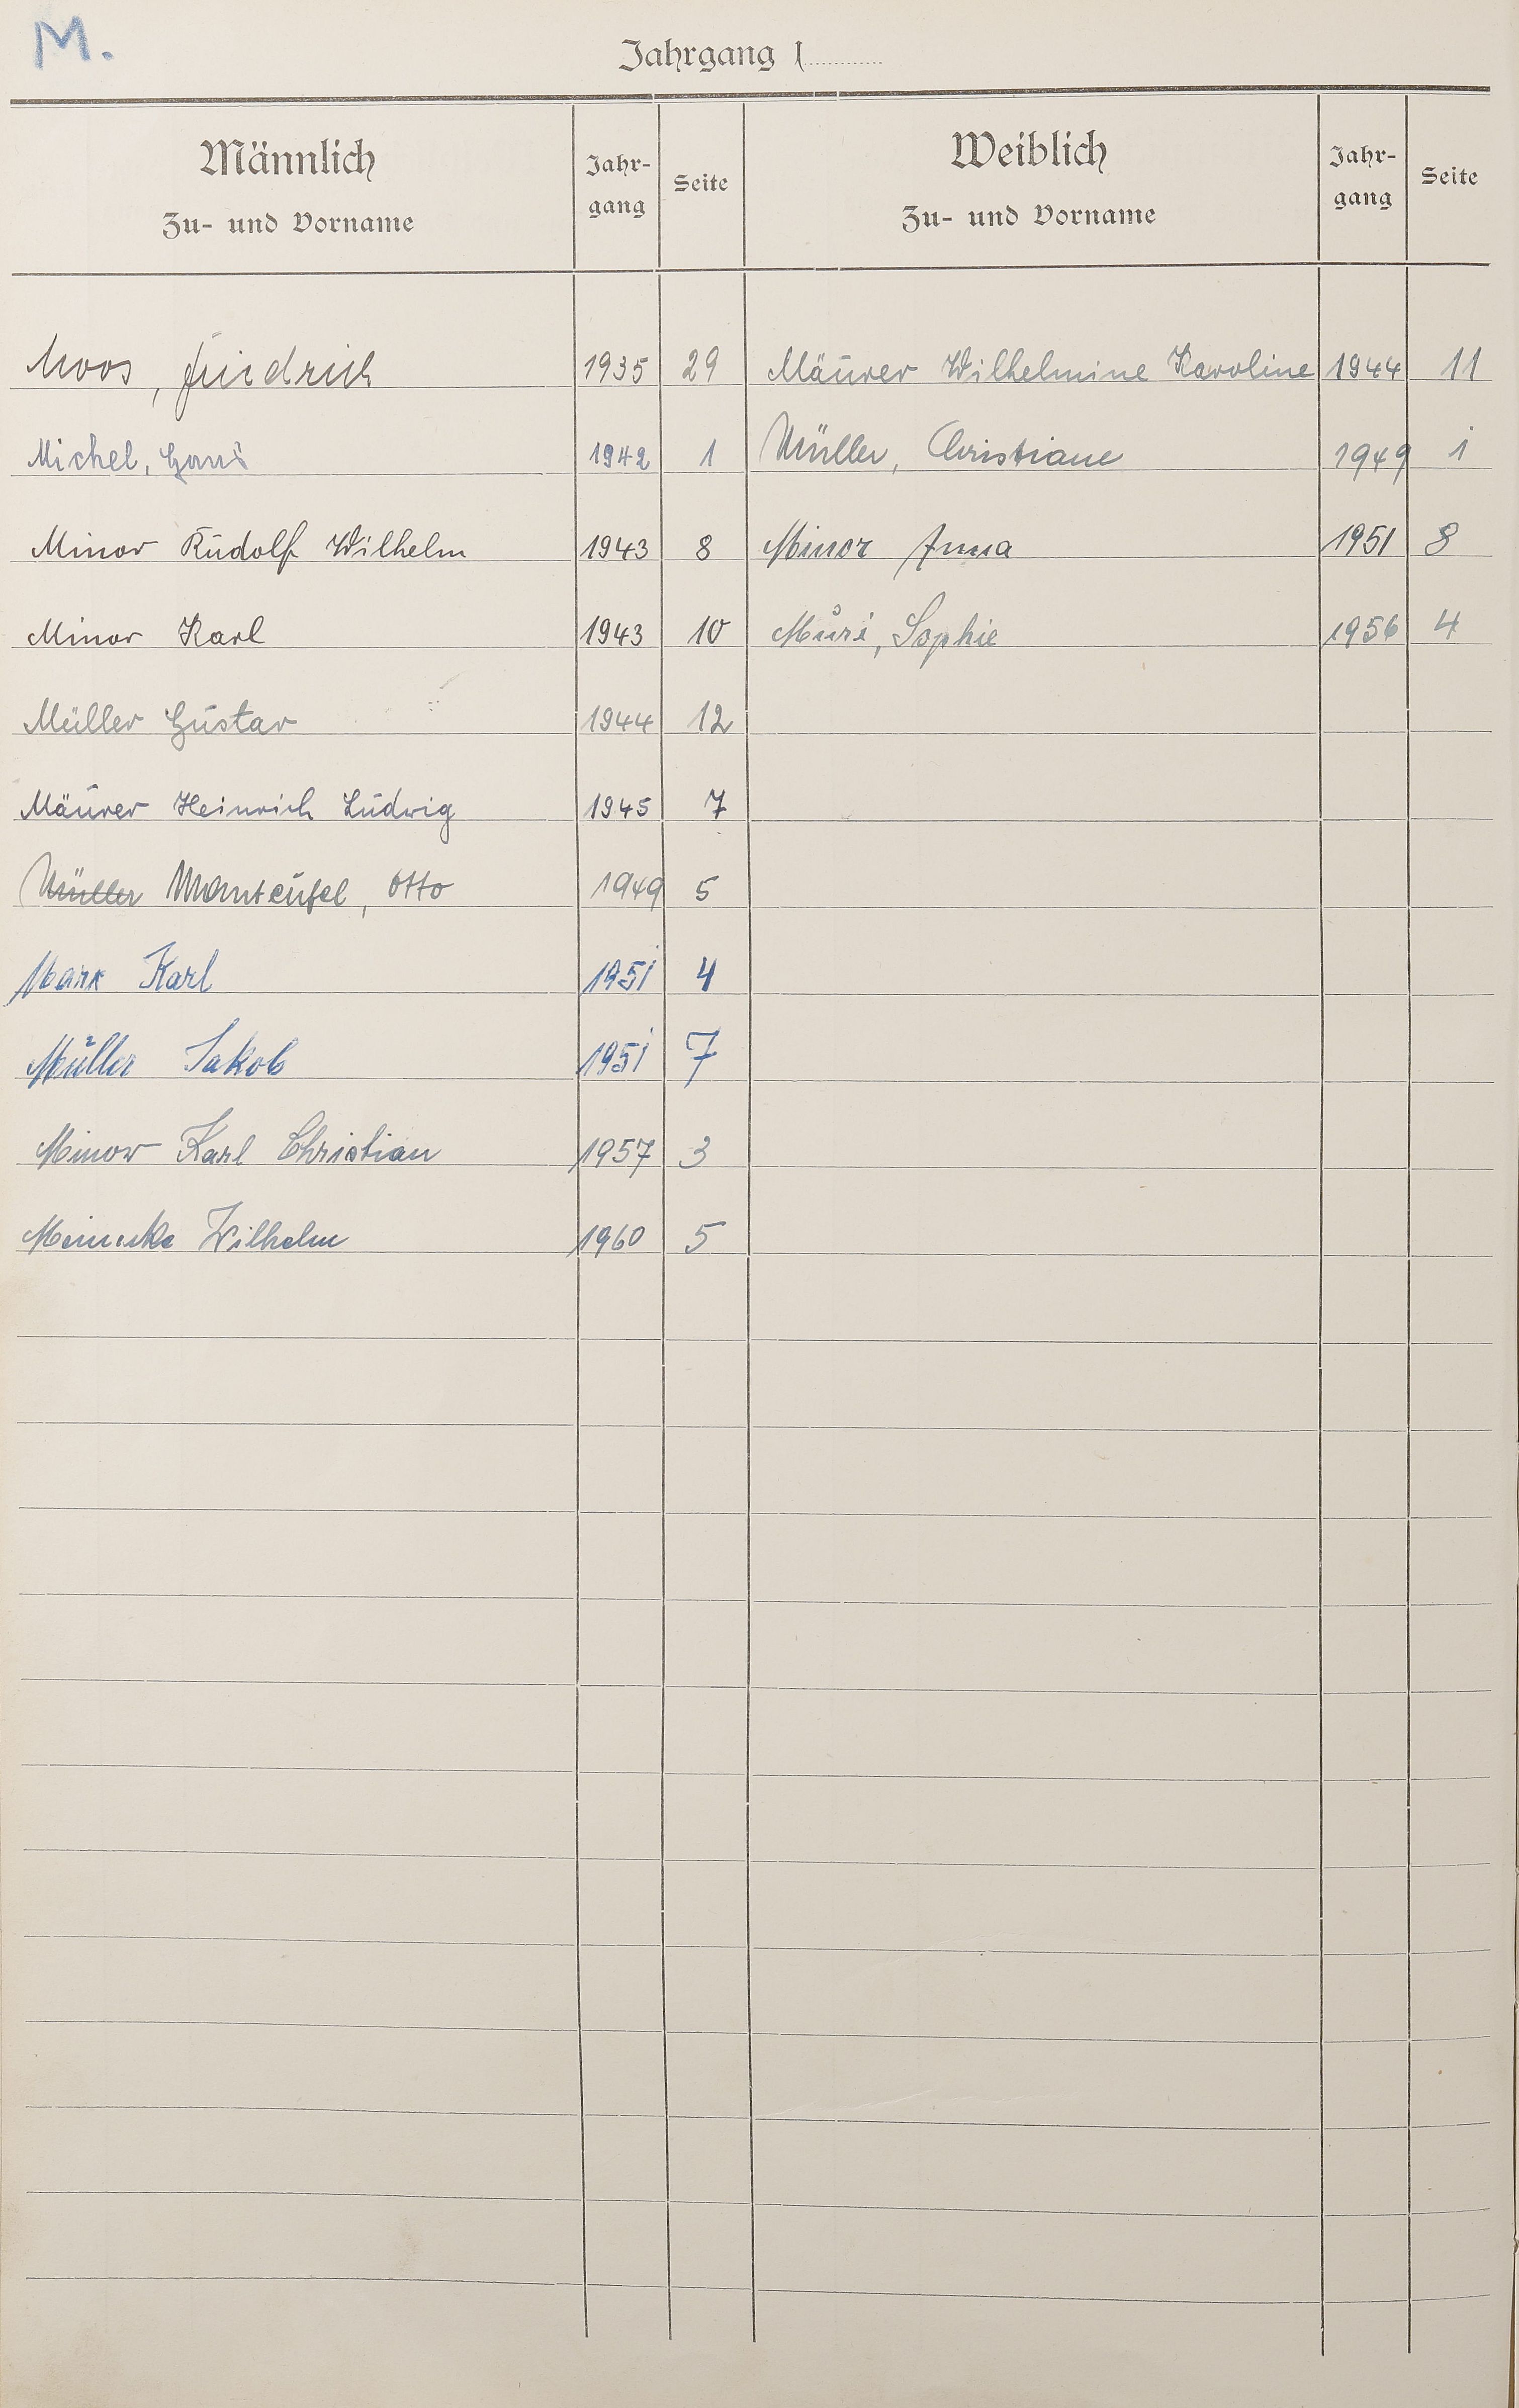 M.
Jahrgang 1
Männlich
Zu- und Vorname
Jahr-
gang
Seite
Weiblich
Zu- und Vorname
Jahr-
gang
Seite
Moos, Friedrich 1935 29 Mäurer Wilhelmine Karoline 1944 11
Michel, Hans 1942 1 Müller, Christiane 1949 1
Minor Rudolf Wilhelm 1943 8 Minor Anna 1951 8
Minor Karl 1943 10 Müri, Sophie 1956 4
Müller Gustav 1944 12
Mäurer Heinrich Ludwig 1945 7
Müller Manteufel, Otto 1949 5
Marx Karl 1951 4
Müller Jakob 1951 7
Minor Karl Christian 1957 3
Meinecke Wilhelm 1960 5